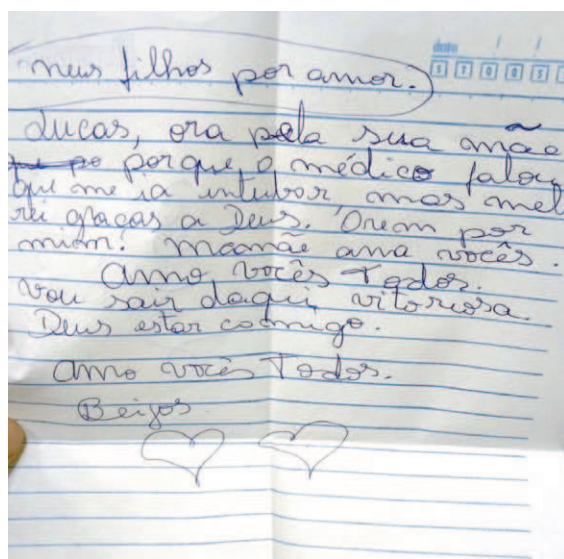 date / /
S T Q Q S S
meus filhos por amor.
Lucas, ora pela sua mãe
porque, o médico falou
que me ia intubar, mas mel
rei graças a Deus. Orem por
mim! mamãe ama vocês.
Amo vocês Todos.
vou sair daqui, vitoriosa.
Deus estar comigo.
Amo vocês Todos.
Beijos